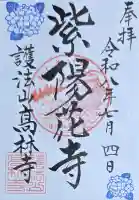 奉拝
令和八年七月四日
紫陽花寺
護法山髙林寺